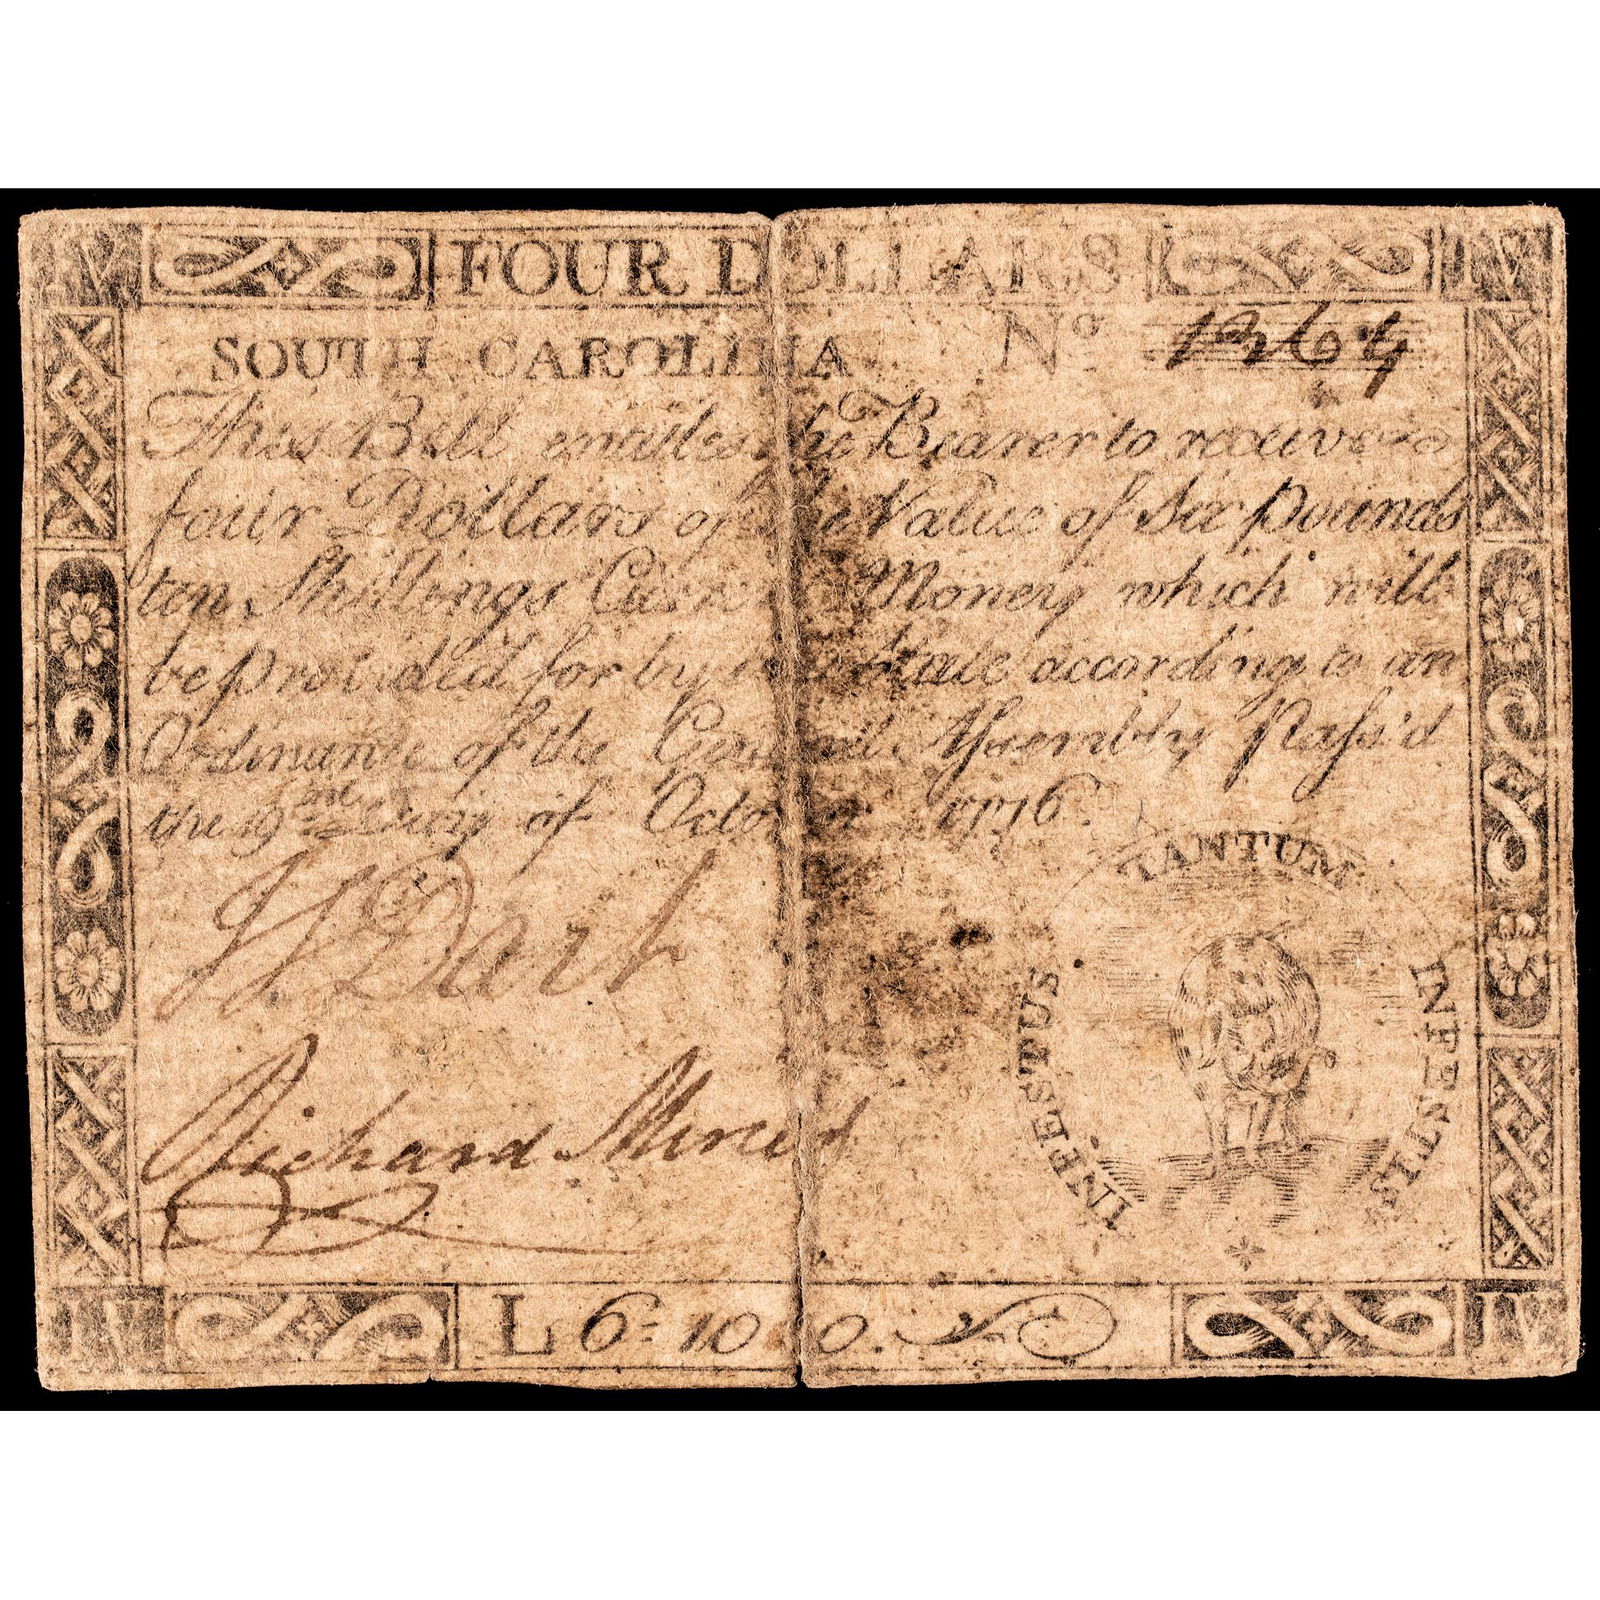 IV FOUR DOLLARS IV
SOUTH CAROLINA No. 1364
This Bill entitles the Bearer to receive
four Dollars or the Value of Six pounds
ten Shillings Curr Money which will
be provided for by this State according to an
Ordinance of the General Assembly Pass'd
the 19th day of October 1776.
TANTUM
INFESTUS
INFESTIS
Dart
Richard
IV L 6: 10 0. IV